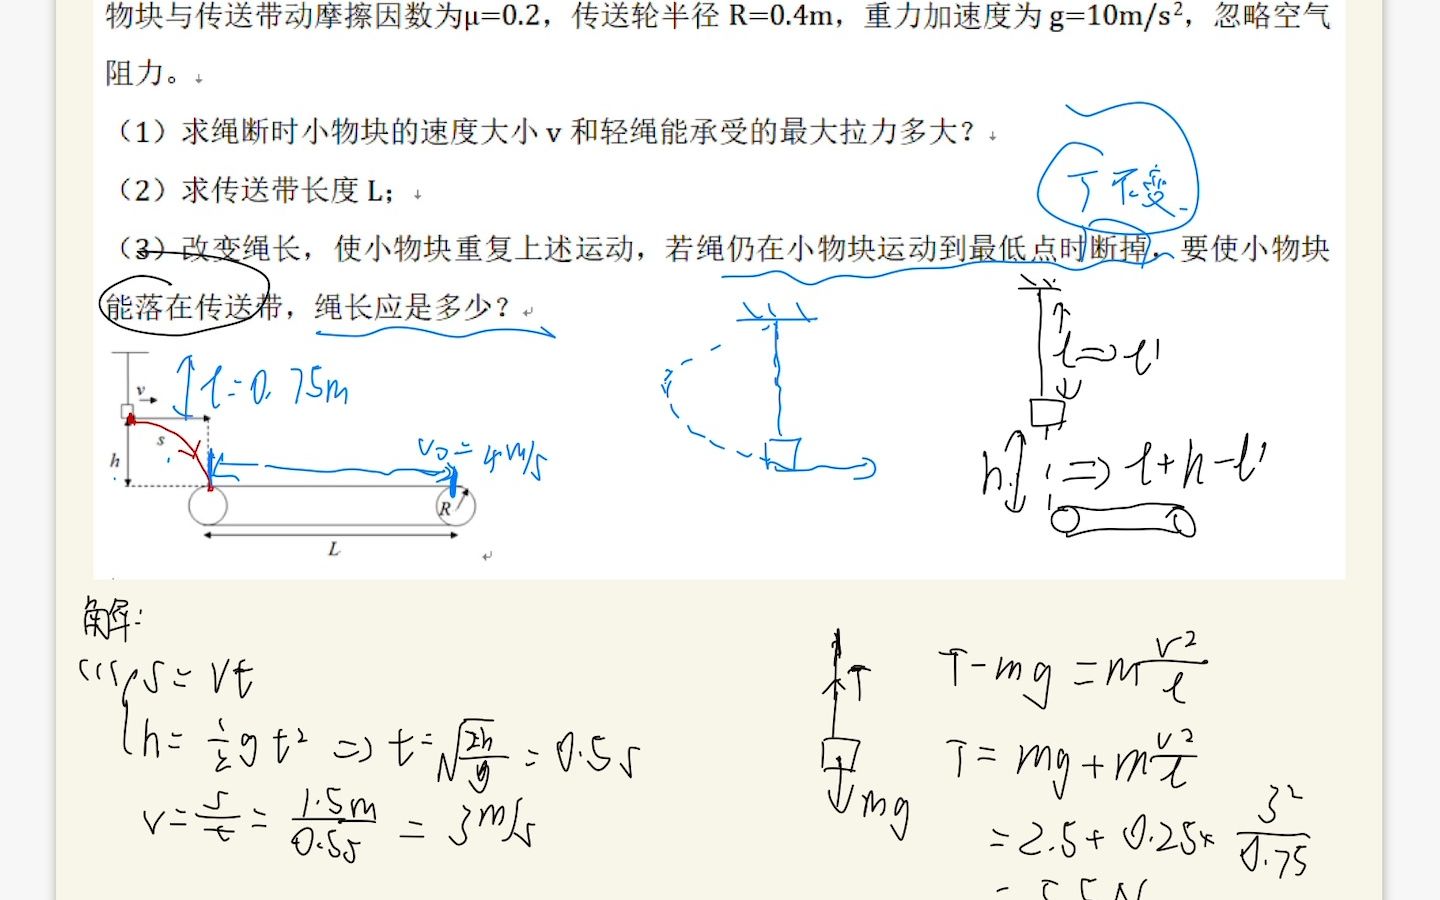 物块与传送带动摩擦因数为μ=0.2，传送轮半径 R=0.4m，重力加速度为 g=10m/s²，忽略空气
阻力。
（1）求绳断时小物块的速度大小 v 和轻绳能承受的最大拉力多大？
（2）求传送带长度 L；
T 不变
（3）改变绳长，使小物块重复上述运动，若绳仍在小物块运动到最低点时断掉，要使小物块
能落在传送带，绳长应是多少？
l=0.75m
l⇒l'
v
s
h
v₀=4m/s
h ⇒ l+h-l'
R
L
解:
(1) s=vt
h=½gt² ⇒ t=√(2h/g)=0.5s
v=s/t=1.5m/0.5s=3m/s
T
mg
T-mg=mv²/l
T=mg+mv²/l
=2.5+0.25×3²/0.75